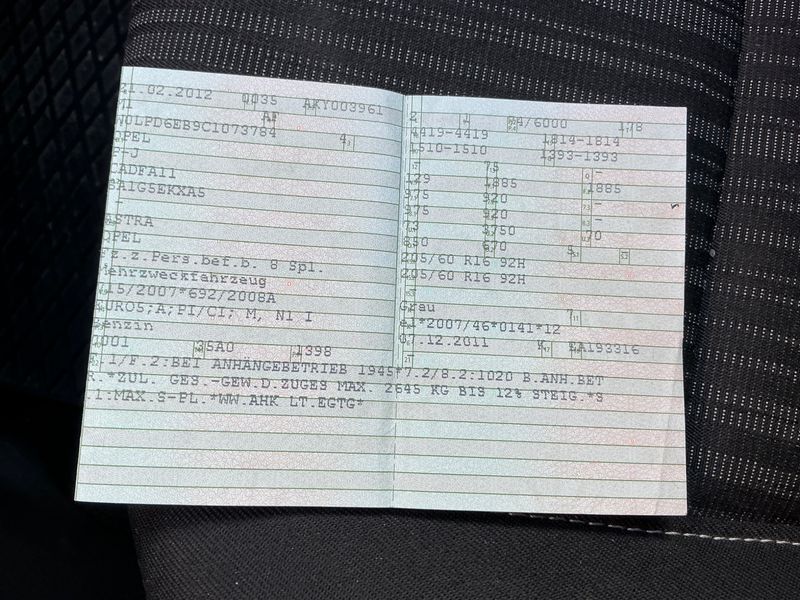 21.02.2012 0035 AKY003961
M1 AF
W0LPD6EB9C1073784 4
OPEL
P-J
CADFA11
BA1G5EKXA5
-
ASTRA
OPEL
Fz.z.Pers.bef.b. 8 Spl.
Mehrzweckfahrzeug
715/2007*692/2008A
EURO5;A;PI/CI; M, N1 I
Benzin
0001 35A0 1398
2 1 74/6000 178
4419-4419 1814-1814
1510-1510 1393-1393
75 -
129 1885 1885
975 920
975 920 -
73 3750 70
850 670 5
205/60 R16 92H
205/60 R16 92H
Grau 7
e1*2007/46*0141*12
07.12.2011 K EA193316
F.1/F.2:BEI ANHÄNGEBETRIEB 1945*7.2/8.2:1020 B.ANH.BET
R.*ZUL. GES.-GEW.D.ZUGES MAX. 2645 KG BIS 12% STEIG.*S
.1:MAX.S-PL.*WW.AHK LT.EGTG*